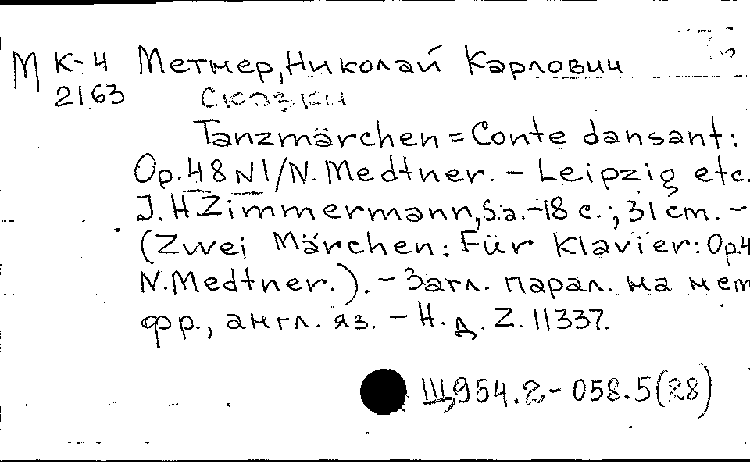 М К-4 Метнер, Николай Карлович
2163 Сказки
Tanzmärchen = Conte dansant:
Op. 48 N1/N. Medtner. – Leipzig etc.
J. H. Zimmermann, s.a. – 18 с.; 31 cm. –
(Zwei Märchen: Für Klavier: Op.4
N. Medtner.). – Загл. парал. на нем
фр., англ. яз. – Н. д. Z. 11337.
Щ954.2-058.5(28)